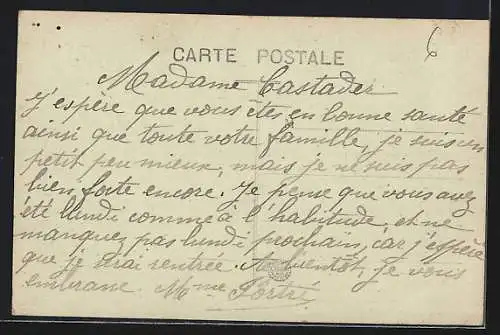 6
CARTE POSTALE
Madame Castader
J'espère que vous êtes en bonne santé
ainsi que toute votre famille, je suis un
petit peu mieux, mais je ne suis pas
bien forte encore. Je pense que vous avez
été lundi comme à l'habitude, et ne
manquez pas lundi prochain, car j'espère
que je serai rentrée. A bientôt, je vous
embrasse. Mme